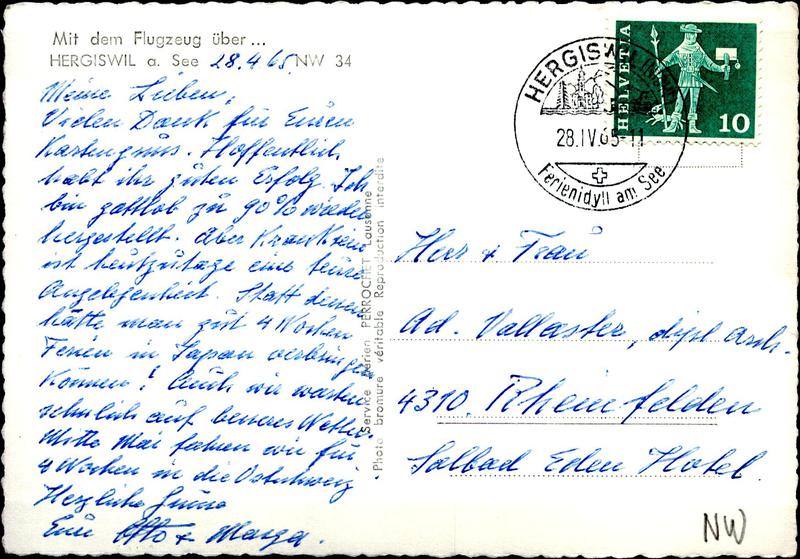 Mit dem Flugzeug über...
HERGISWIL a. See 28.4.65. NW 34
Meine Lieben,
Vielen Dank für Euren
Kartengruss. Hoffentlich
habt ihr guten Erfolg. Ich
bin gottlob zu 90% wieder
hergestellt. Aber Kranksein
ist heutzutage eine teure
Angelegenheit. Statt dessen
hätte man gut 4 Wochen
Ferien in Japan verbringen
können! Auch wir warten
sehnlich auf besseres Wetter.
Mitte Mai fahren wir für
4 Wochen in die Ostschweiz
Herzliche Grüsse
Eure Otto + Marga.
Service aérien PERROCHET Lausanne
Photo bromure véritable Reproduction interdite
HERGISWIL
28.IV.65-11
Ferienidyll am See
HELVETIA
10
Herr + Frau
Ad. Vallaster, dipl. Arch.
4310 Rheinfelden
Solbad Eden Hotel
NW